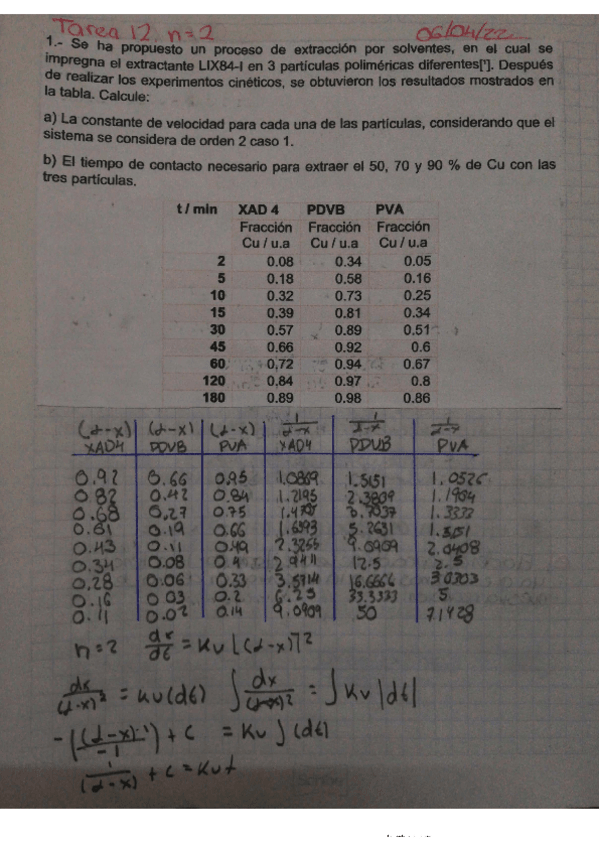 Tarea 12, n=2 06/04/22
1.- Se ha propuesto un proceso de extracción por solventes, en el cual se
impregna el extractante LIX84-I en 3 partículas poliméricas diferentes[¹]. Después
de realizar los experimentos cinéticos, se obtuvieron los resultados mostrados en
la tabla. Calcule:
a) La constante de velocidad para cada una de las partículas, considerando que el
sistema se considera de orden 2 caso 1.
b) El tiempo de contacto necesario para extraer el 50, 70 y 90 % de Cu con las
tres partículas.
t / min XAD 4 PDVB PVA
Fracción Fracción Fracción
Cu / u.a Cu / u.a Cu / u.a
2 0.08 0.34 0.05
5 0.18 0.58 0.16
10 0.32 0.73 0.25
15 0.39 0.81 0.34
30 0.57 0.89 0.51
45 0.66 0.92 0.6
60 0,72 0.94 0.67
120 0,84 0.97 0.8
180 0.89 0.98 0.86
(α-x) (α-x) (α-x) 1/α-x 1/α-x 1/α-x
XAD4 PDVB PVA XAD4 PDVB PVA
0.92 0.66 0.95 1.0869 1.5151 1.0526
0.82 0.42 0.84 1.2195 2.3809 1.1904
0.68 0,27 0.75 3.7037 1.3332
0.61 0.19 0.66 1.6393 5.2631 1.5151
0.43 0.11 0.49 2.3255 9.0909 2.0408
0.34 0.08 0.4 2.9411 12.5 2.5
0,28 0.06 0.33 3.5714 16,6666 3.0303
0.16 0.03 0.2 6.25 33.3333 5
0.11 0.02 0.14 9.0909 50 7.1428
n=2 dx/dt = Kv[(α-x)]²
dx/(α-x)² = Kv(dt) ∫ dx/(α-x)² = ∫ Kv |dt|
-|((α-x)⁻¹)/-1| + C = Kv ∫ (dt)
1/(α-x) + C = Kv t